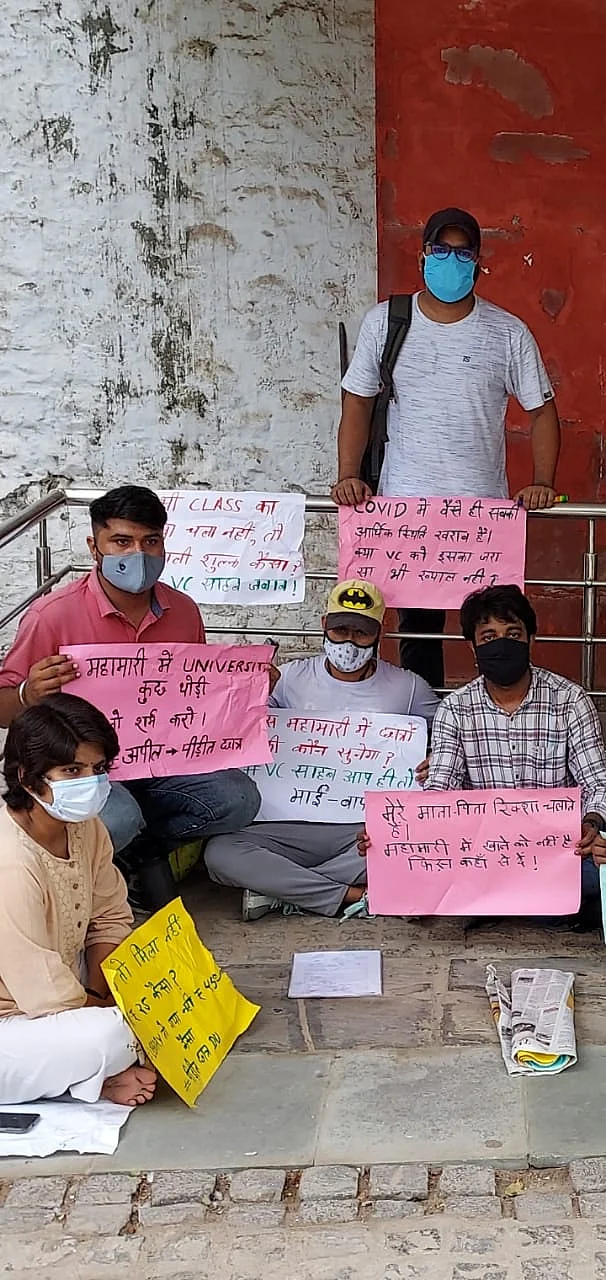 CLASS का
चला नहीं, तो
शुल्क कैसा?
VC साहब जबाब!
COVID में वैसे ही सबकी
आर्थिक स्थिति खराब हैं।
क्या VC को इसका जरा
सा भी ख्याल नहीं?
महामारी में UNIVERSIT
कुछ थोड़ी
शर्म करो।
अपील → पीड़ीत छात्र
महामारी में छात्रों
की कौन सुनेगा?
# VC साहब आप ही तो
माई-बाप
मेरे माता-पिता रिक्शा-चलाते
हैं।
महामारी में खाने को नहीं है
फिस कहाँ से दें!
तो मिला नहीं
कैसा?
कैसा
छात्र DU